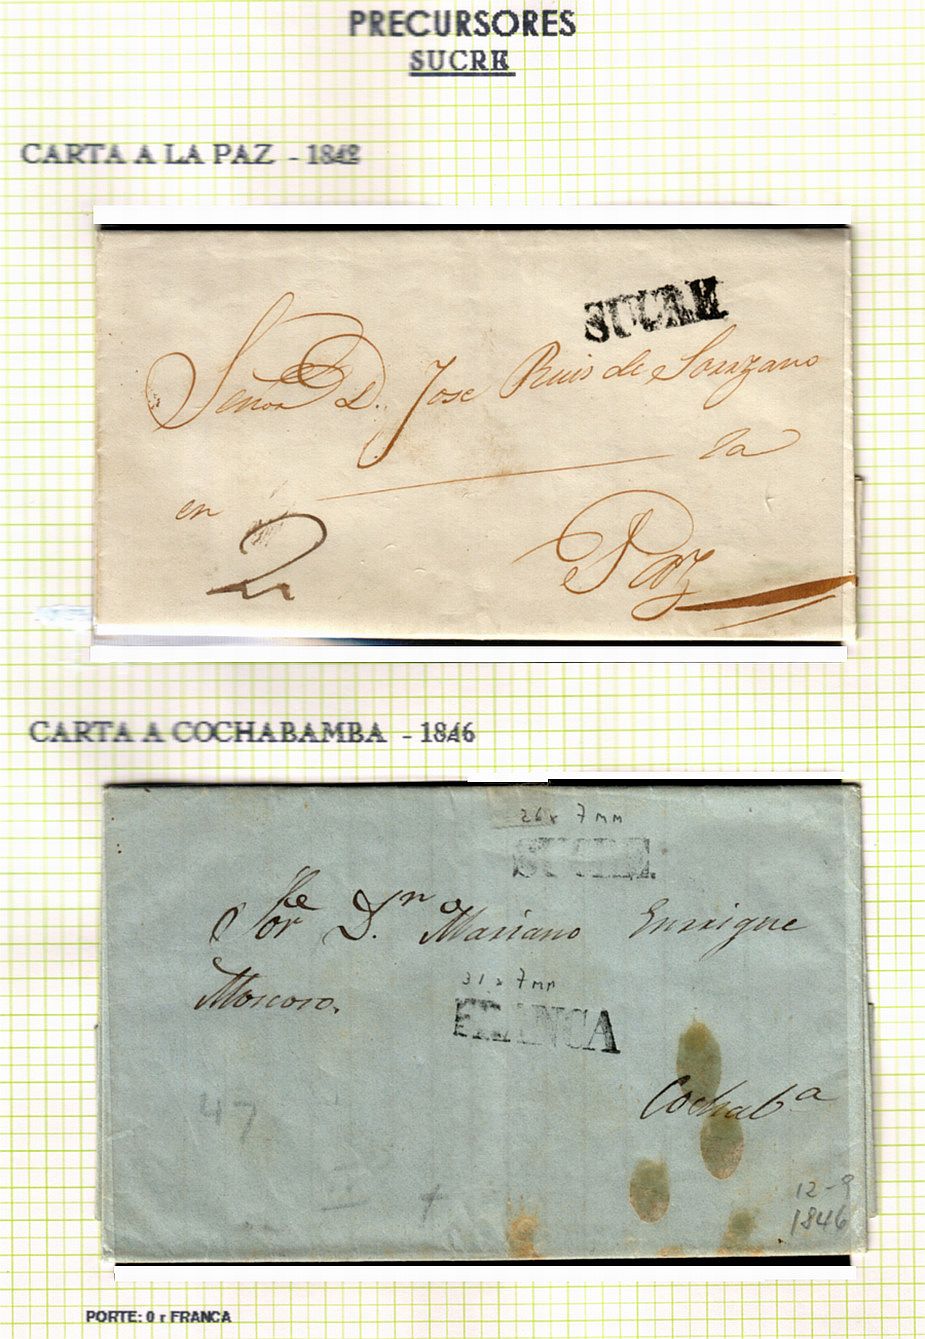 PRECURSORES
SUCRE
CARTA A LA PAZ - 1842
SUCRE
Señor D. Jose Ruis de Sorzano
en la
2
Paz
CARTA A COCHABAMBA - 1846
26 x 7 mm
SUCRE.
Sor Dn Mariano Enrrique
Moscoso.
31 x 7 mm
FRANCA
Cochaba
47
12-9
1846
PORTE: 0 r FRANCA